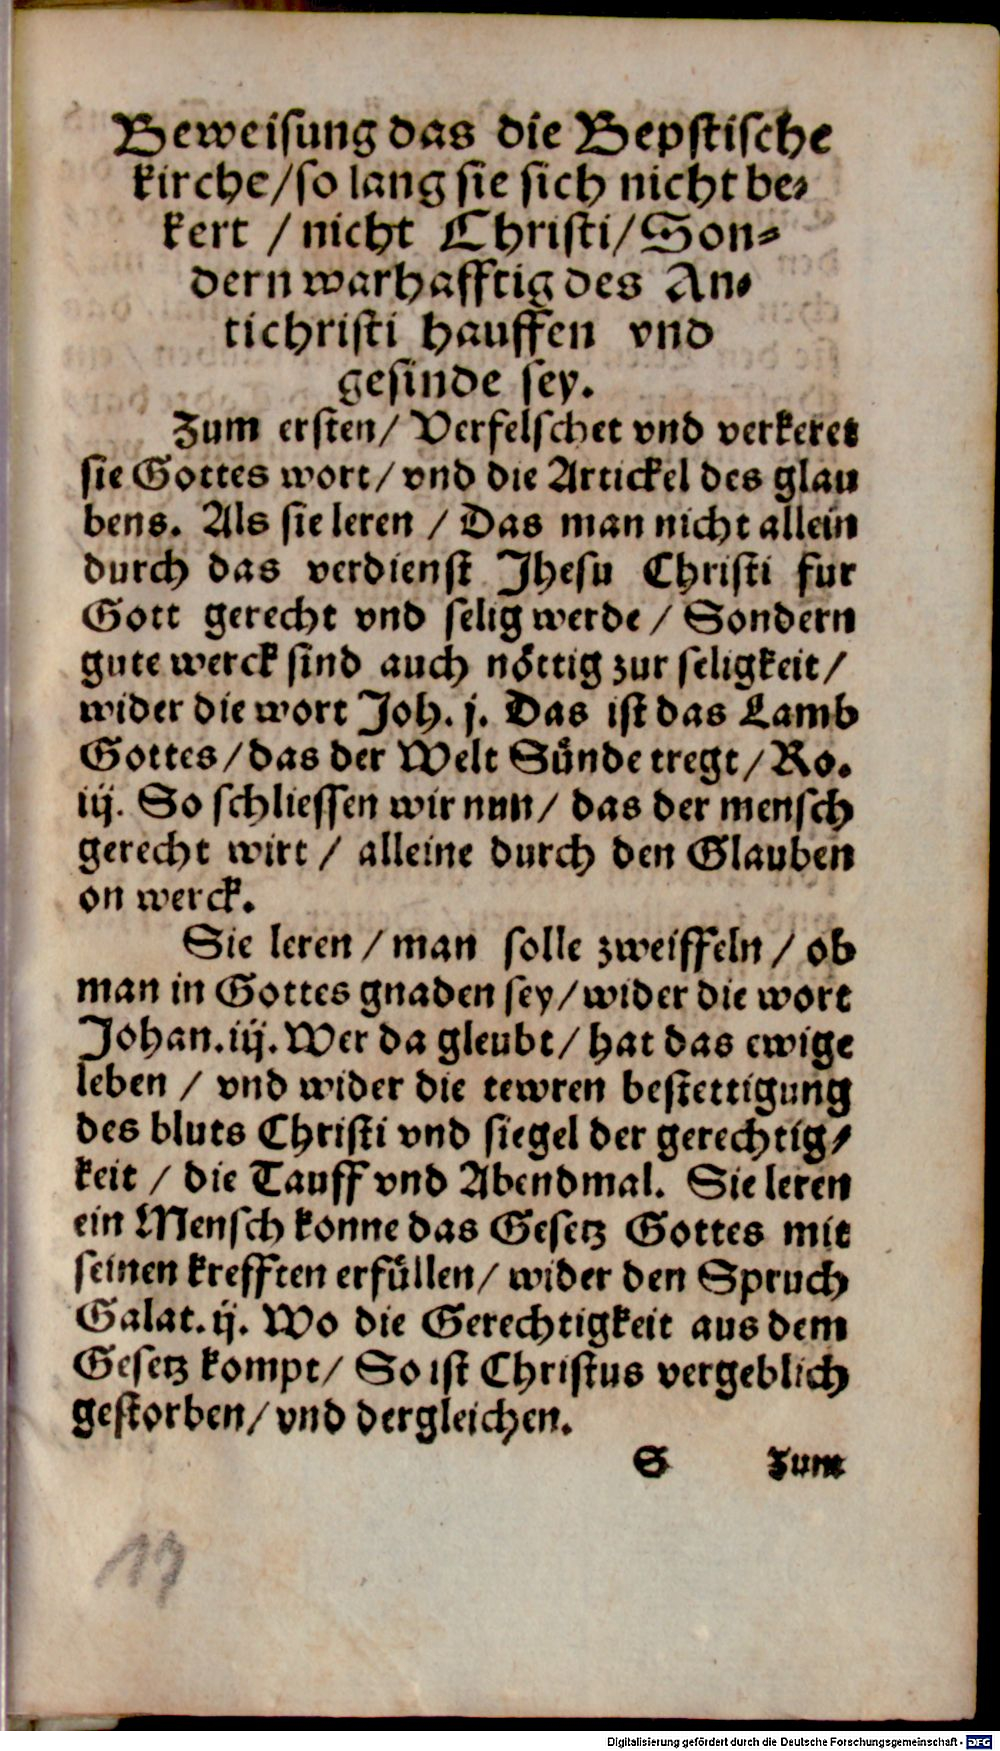 Beweisung das die Bepstische
kirche/so lang sie sich nicht be-
kert / nicht Christi/Son-
dern warhafftig des An-
tichristi hauffen vnd
gesinde sey.
Zum ersten/ Verfelschet vnd verkeret
sie Gottes wort/ vnd die Artickel des glau
bens. Als sie leren / Das man nicht allein
durch das verdienst Jhesu Christi fur
Gott gerecht vnd selig werde / Sondern
gute werck sind auch nöttig zur seligkeit/
wider die wort Joh. j. Das ist das Lamb
Gottes/das der Welt Sünde tregt/Ro.
iij. So schliessen wir nun/ das der mensch
gerecht wirt / alleine durch den Glauben
on werck.
Sie leren / man solle zweiffeln / ob
man in Gottes gnaden sey/wider die wort
Johan.iij. Wer da gleubt/ hat das ewige
leben / vnd wider die tewren bestettigung
des bluts Christi vnd siegel der gerechtig-
keit / die Tauff vnd Abendmal. Sie leren
ein Mensch konne das Gesetz Gottes mit
seinen krefften erfüllen/ wider den Spruch
Galat.ij. Wo die Gerechtigkeit aus dem
Gesetz kompt/ So ist Christus vergeblich
gestorben/vnd dergleichen.
S Zum
Digitalisierung gefördert durch die Deutsche Forschungsgemeinschaft - DFG